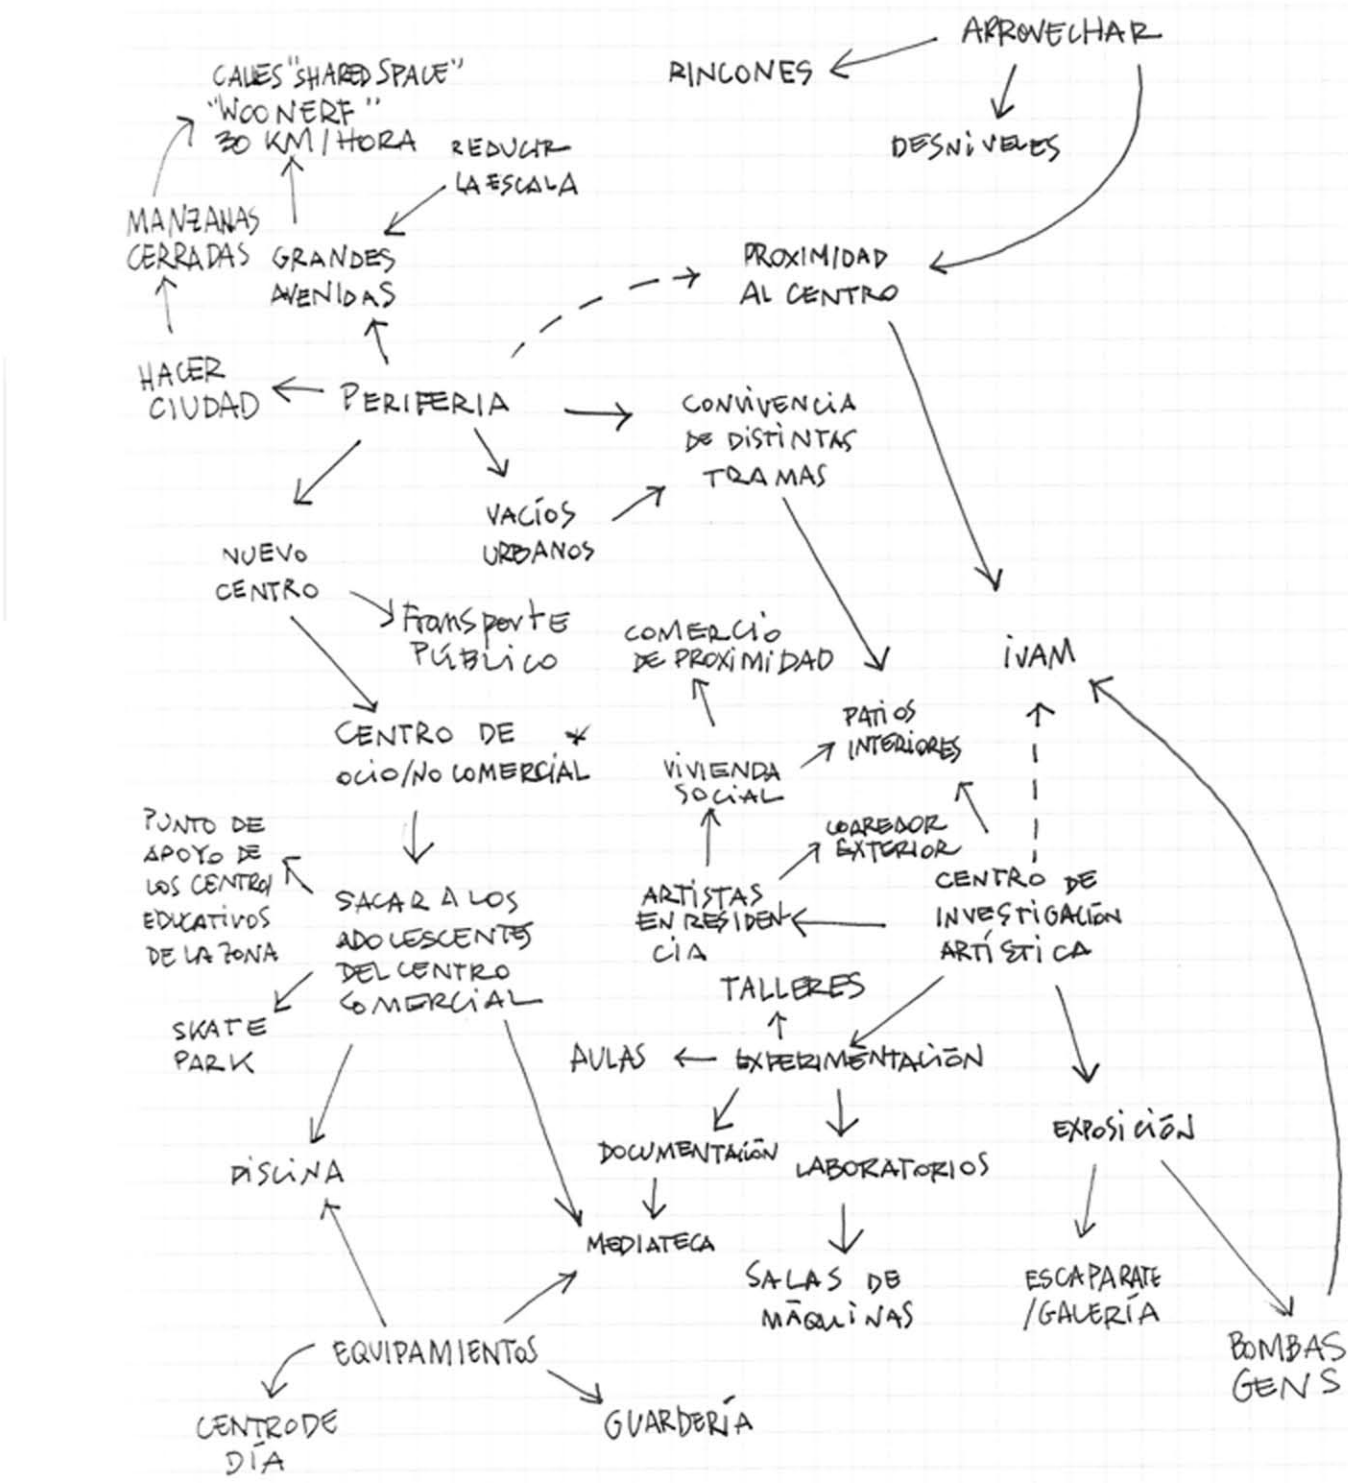 APROVECHAR
RINCONES
DESNIVELES
CALLES "SHARED SPACE"
"WOONERF"
30 KM/HORA
REDUCIR
LA ESCALA
MANZANAS
CERRADAS
GRANDES
AVENIDAS
PROXIMIDAD
AL CENTRO
HACER
CIUDAD
PERIFERIA
CONVIVENCIA
DE DISTINTAS
TRAMAS
VACÍOS
URBANOS
NUEVO
CENTRO
Transporte
PÚBLICO
COMERCIO
DE PROXIMIDAD
IVAM
CENTRO DE *
OCIO/NO COMERCIAL
PATIOS
INTERIORES
VIVIENDA
SOCIAL
PUNTO DE
APOYO DE
LOS CENTROS
EDUCATIVOS
DE LA ZONA
CORREDOR
EXTERIOR
SACAR A LOS
ADOLESCENTES
DEL CENTRO
COMERCIAL
ARTISTAS
EN RESIDEN
CIA
CENTRO DE
INVESTIGACIÓN
ARTÍSTICA
TALLERES
SKATE
PARK
AULAS
EXPERIMENTACIÓN
DOCUMENTACIÓN
LABORATORIOS
EXPOSICIÓN
PISCINA
MEDIATECA
SALAS DE
MÁQUINAS
ESCAPARATE
/GALERÍA
EQUIPAMIENTOS
BOMBAS
GENS
CENTRO DE
DÍA
GUARDERÍA